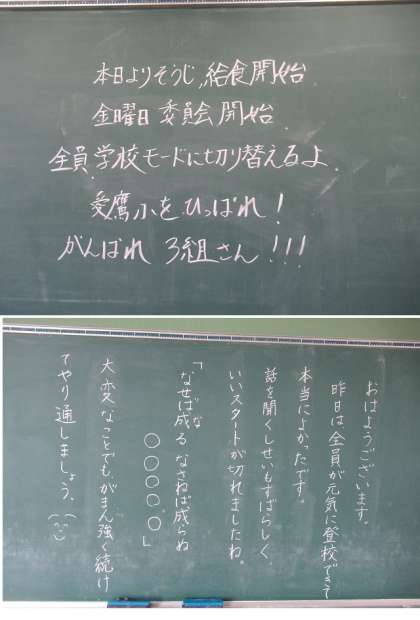 本日よりそうじ,給食開始
金曜日 委員会開始
全員学校モードに切り替えるよ
愛鷹小をひっぱれ!
がんばれ 3組さん!!!
おはようございます。
昨日は全員が元気に登校できて
本当によかったです。
話を聞くしせいもすばらしく
いいスタートが切れましたね。
「なせば成る なさねば成らぬ
な
○○○○○」
大変なことでもがまん強く続け
てやり通しましょう。(^-^)